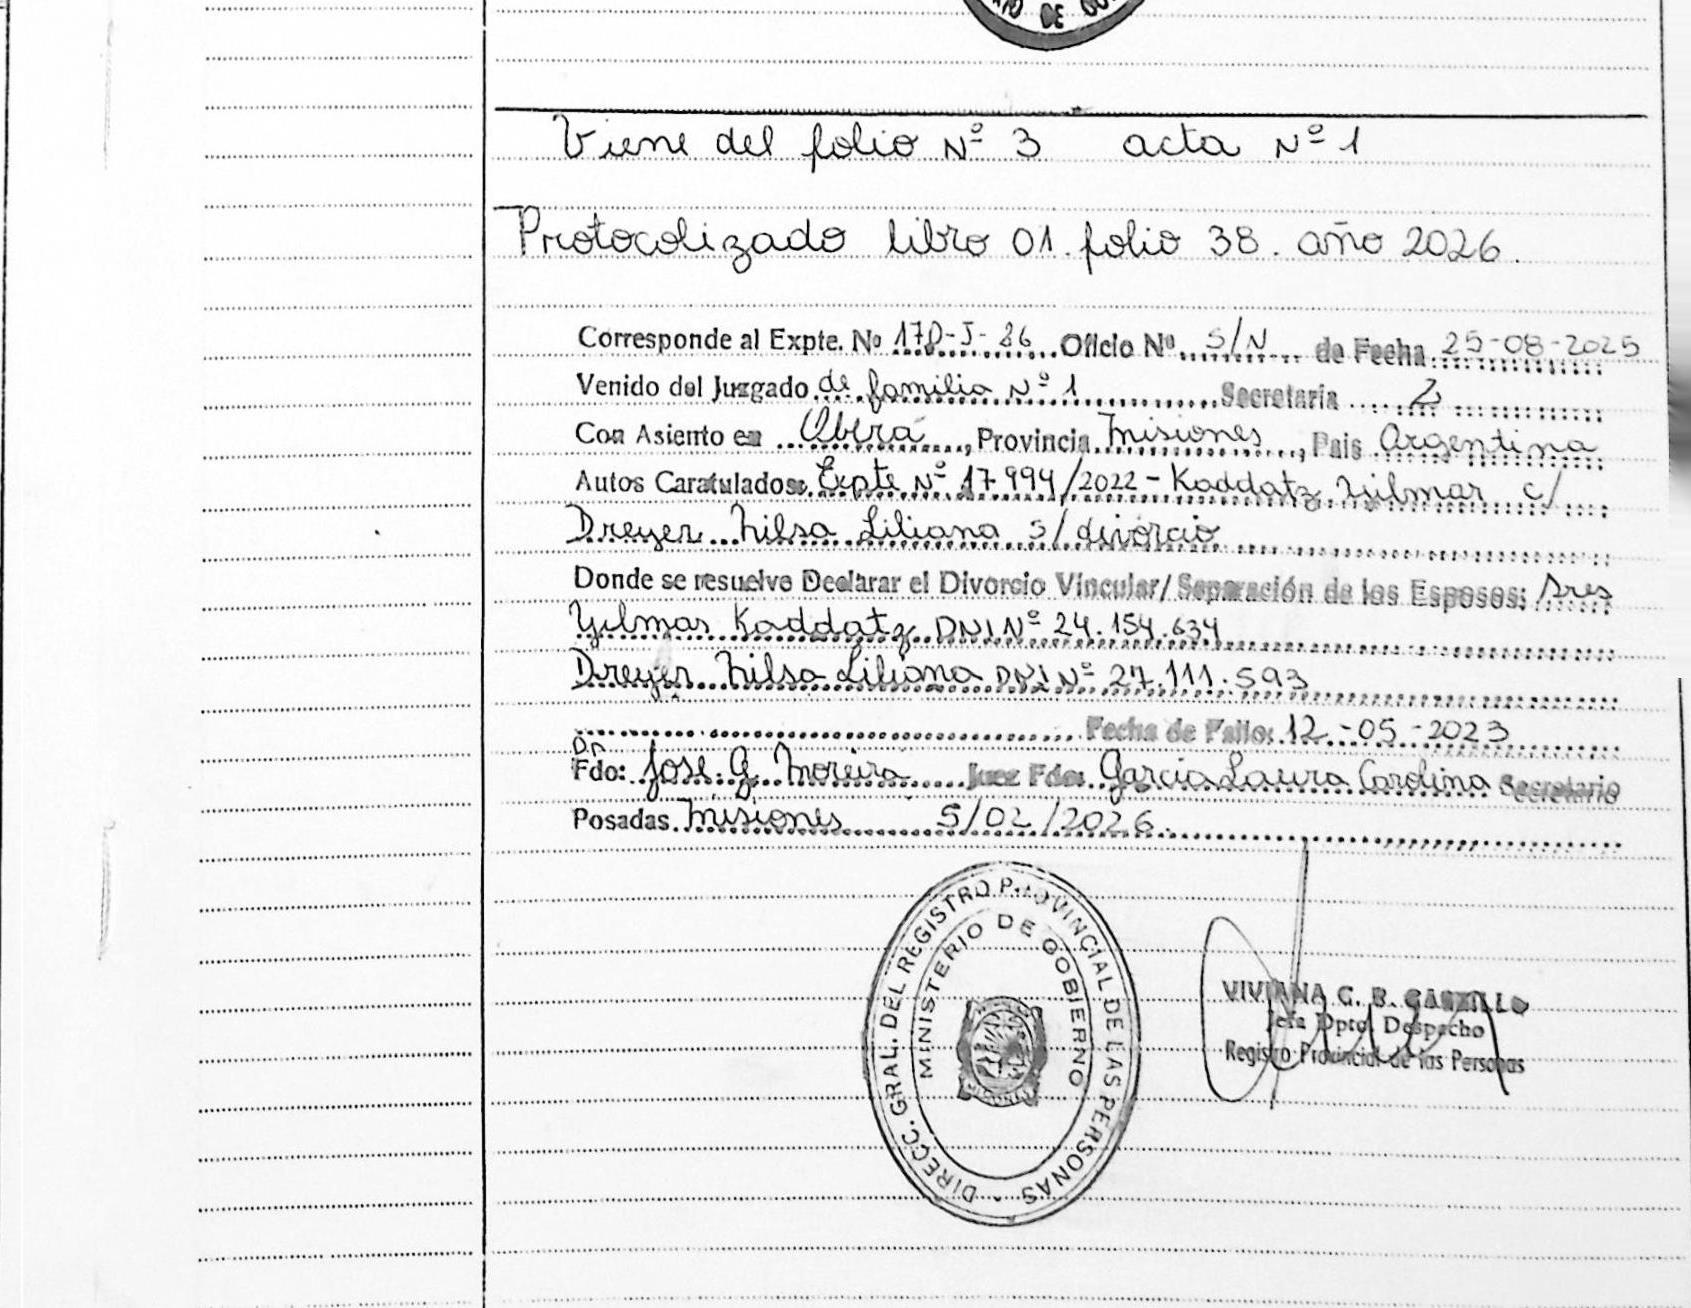 RIO DE GO
Viene del folio Nº 3 acta Nº 1
Protocolizado libro 01. folio 38. año 2026.
Corresponde al Expte. Nº 170-J-26 Oficio Nº S/N de Fecha 25-08-2025
Venido del Juzgado de familia Nº 1 Secretaria 2
Con Asiento en Oberá, Provincia Misiones, Pais Argentina
Autos Caratulados: Expte Nº 17994/2022 - Kaddatz Yilmar c/
Dreyer Nilsa Liliana s/ divorcio
Donde se resuelve Declarar el Divorcio Vincular/ Separación de los Esposos: Sres
Yilmar Kaddatz DNI Nº 24.154.634
Dreyer Nilsa Liliana DNI Nº 27.111.593
Fecha de Fallo: 12-05-2023
Dr
Fdo: José G. Moreira Juez Fdo: Garcia Laura Carolina Secretario
Posadas Misiones 5/02/2026.
DIRECC. GRAL. DEL REGISTRO PROVINCIAL DE LAS PERSONAS
MINISTERIO DE GOBIERNO
MISIONES
VIVIANA G. B.
Jefa Dpto. Despacho
Registro Provincial de las Personas